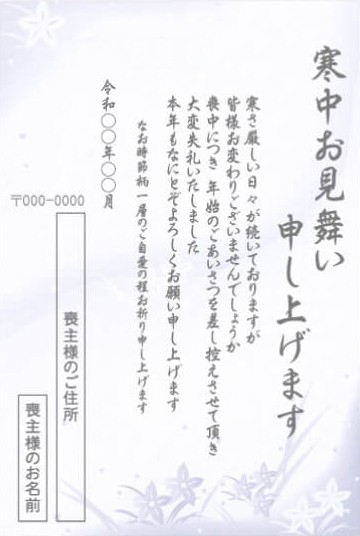 寒中お見舞い
申し上げます
寒さ厳しい日々が続いておりますが
皆様お変わりございませんでしょうか
喪中につき 年始のごあいさつを差し控えさせて頂き
大変失礼いたしました
本年もなにとぞよろしくお願い申し上げます
なお時節柄一層のご自愛の程お祈り申し上げます
令和〇〇年〇〇月
〒000-0000
喪主様のご住所
喪主様のお名前